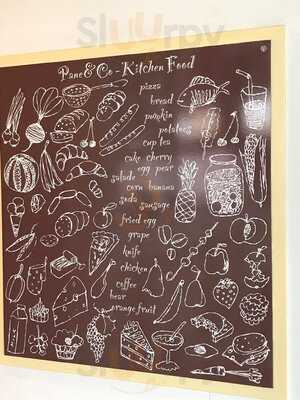 Sluurpy
Pane & Co - Kitchen Food
pizza
bread
pumpkin
potatoes
cup tea
cake cherry
egg pear
salade
corn banana
soda sausage
fried egg
grape
knife
chicken
coffee
bear
orange fruit